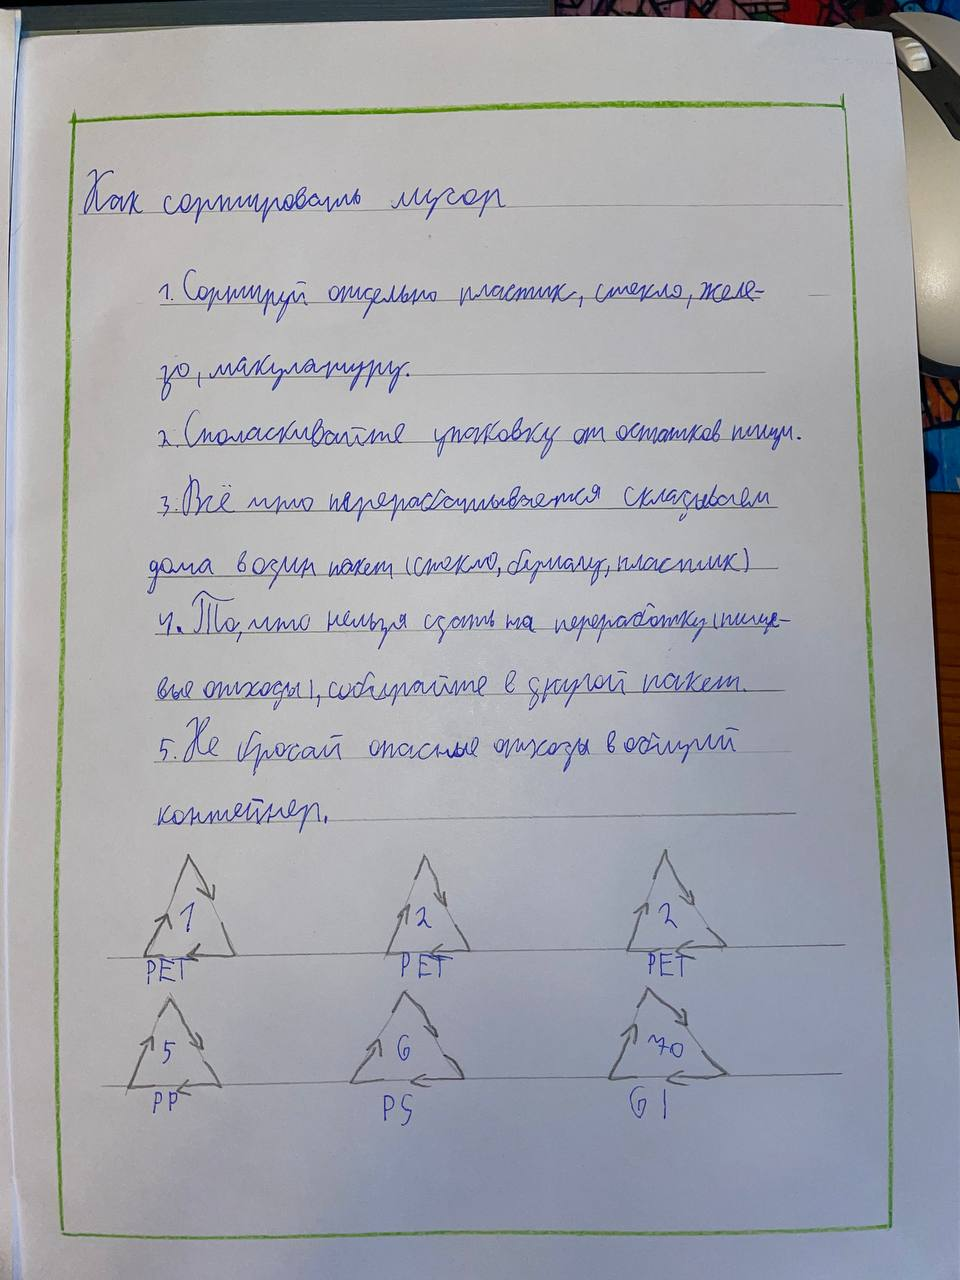 Как сортировать мусор
1. Сортируй отдельно пластик, стекло, желе-
зо, макулатуру.
2. Споласкивайте упаковку от остатков пищи.
3. Всё что перерабатывается складываем
дома в один пакет (стекло, бумагу, пластик)
4. То, что нельзя сдать на переработку (пище-
вые отходы), собирайте в другой пакет.
5. Не бросай опасные отходы в общий
контейнер.
1 2 2
PET PET PET
5 6 70
PP PS Gl